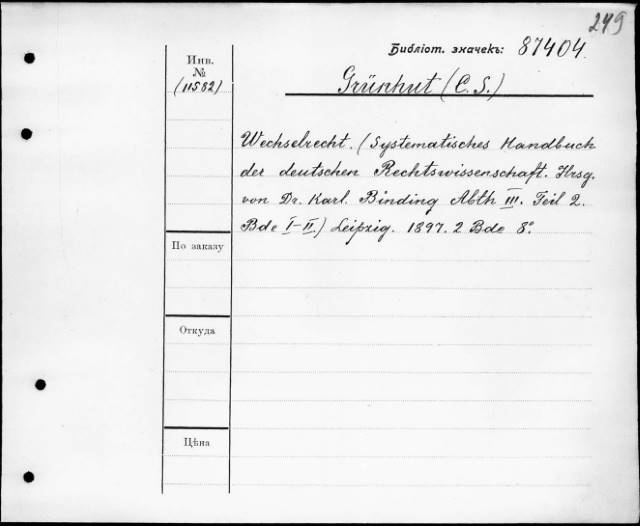 249
Библіот. значекъ: 87404.
Инв.
№
(11582)
Grünhut (C. S.)
Wechselrecht. (Systematisches Handbuch
der deutschen Rechtswissenschaft. Hrsg.
von Dr. Karl Binding Abth III. Teil 2.
Bde I-II.) Leipzig. 1897. 2 Bde 8°.
По заказу
Откуда
Цѣна